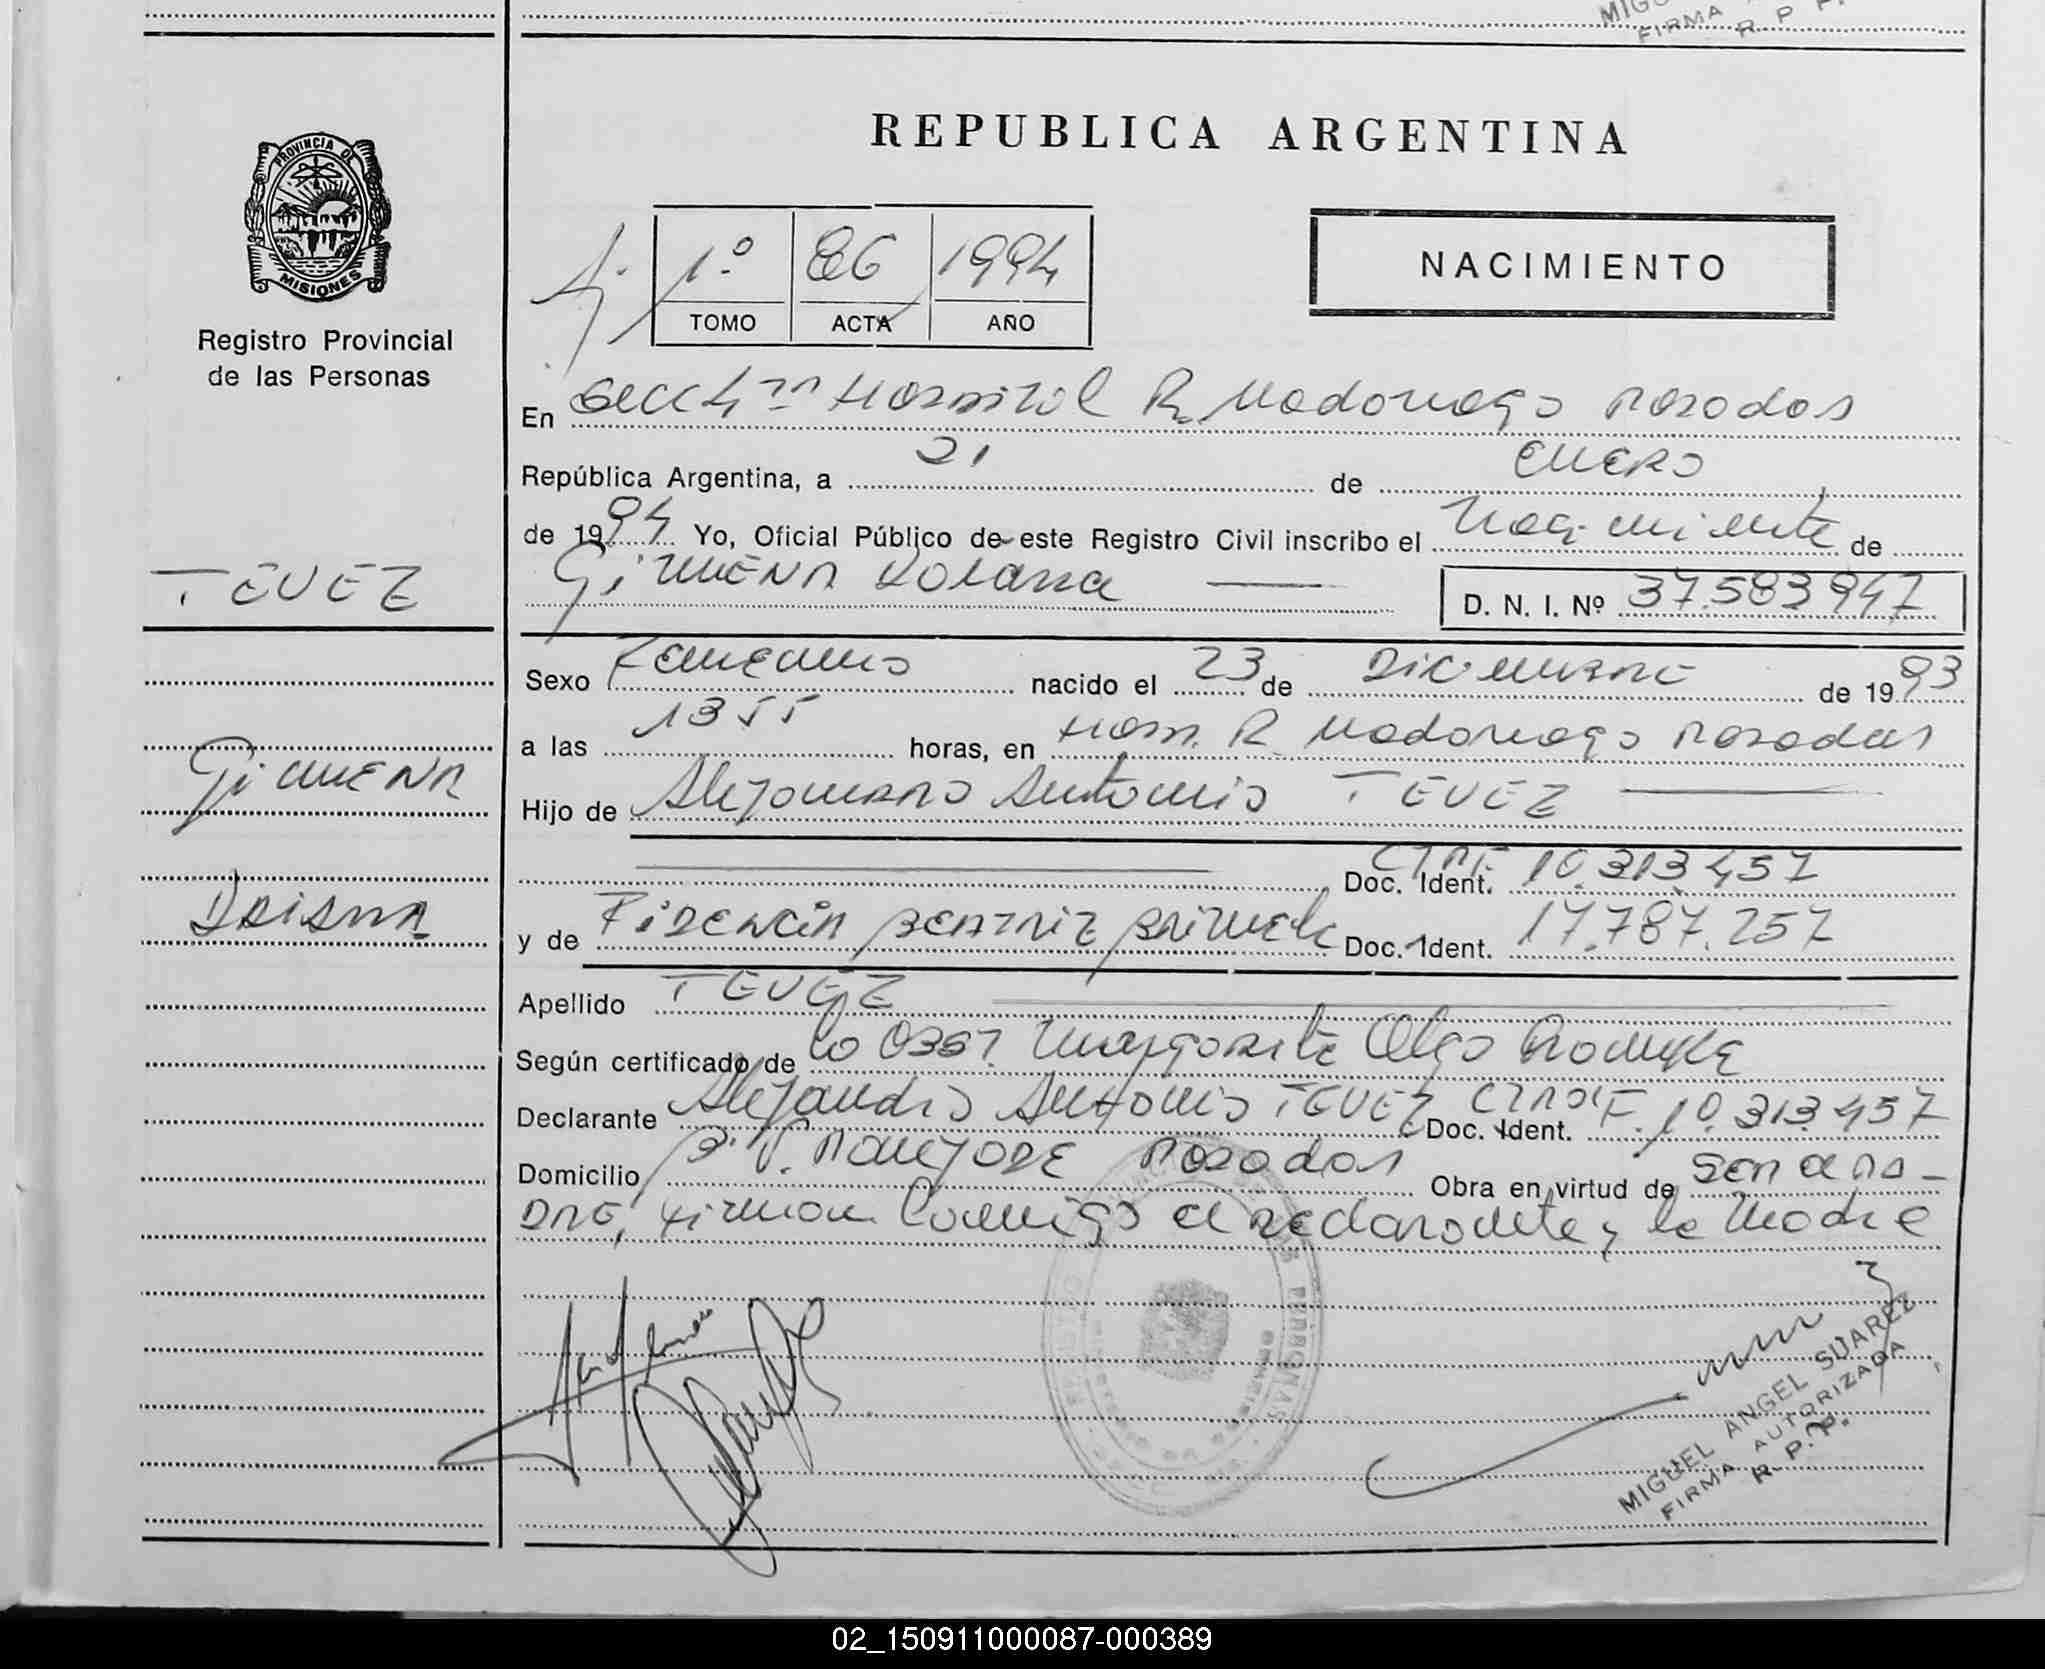 MIGU
FIRMA
R. P. P.
REPUBLICA ARGENTINA
PROVINCIA DE
MISIONES
Registro Provincial
de las Personas
1º 86 1994
TOMO ACTA AÑO
NACIMIENTO
En Secc 4ta Hospital R. Madariaga Posadas
República Argentina, a 21 de ENERO
de 1994 Yo, Oficial Público de este Registro Civil inscribo el Nacimiento de
GIMENA
D. N. I. Nº 37.583947
TEVEZ
GIMENA
Sexo Femenino nacido el 23 de DICIEMBRE de 1993
a las 1355 horas, en Hosp. R. Madariaga Posadas
Hijo de Alejandro Antonio TEVEZ
Doc. Ident. 10.313.457
y de FIDENCIA BEATRIZ Doc. Ident. 17.787.257
Apellido TEVEZ
Según certificado de la Obst. Margarita Olga
Declarante Alejandro Antonio TEVEZ Doc. Ident. 10.313.457
Domicilio Posadas Obra en virtud de SER EL PA-
DRE, firman Conmigo el declarante y la Madre
MIGUEL ANGEL SUAREZ
FIRMA AUTORIZADA
R. P. P.
02_150911000087-000389